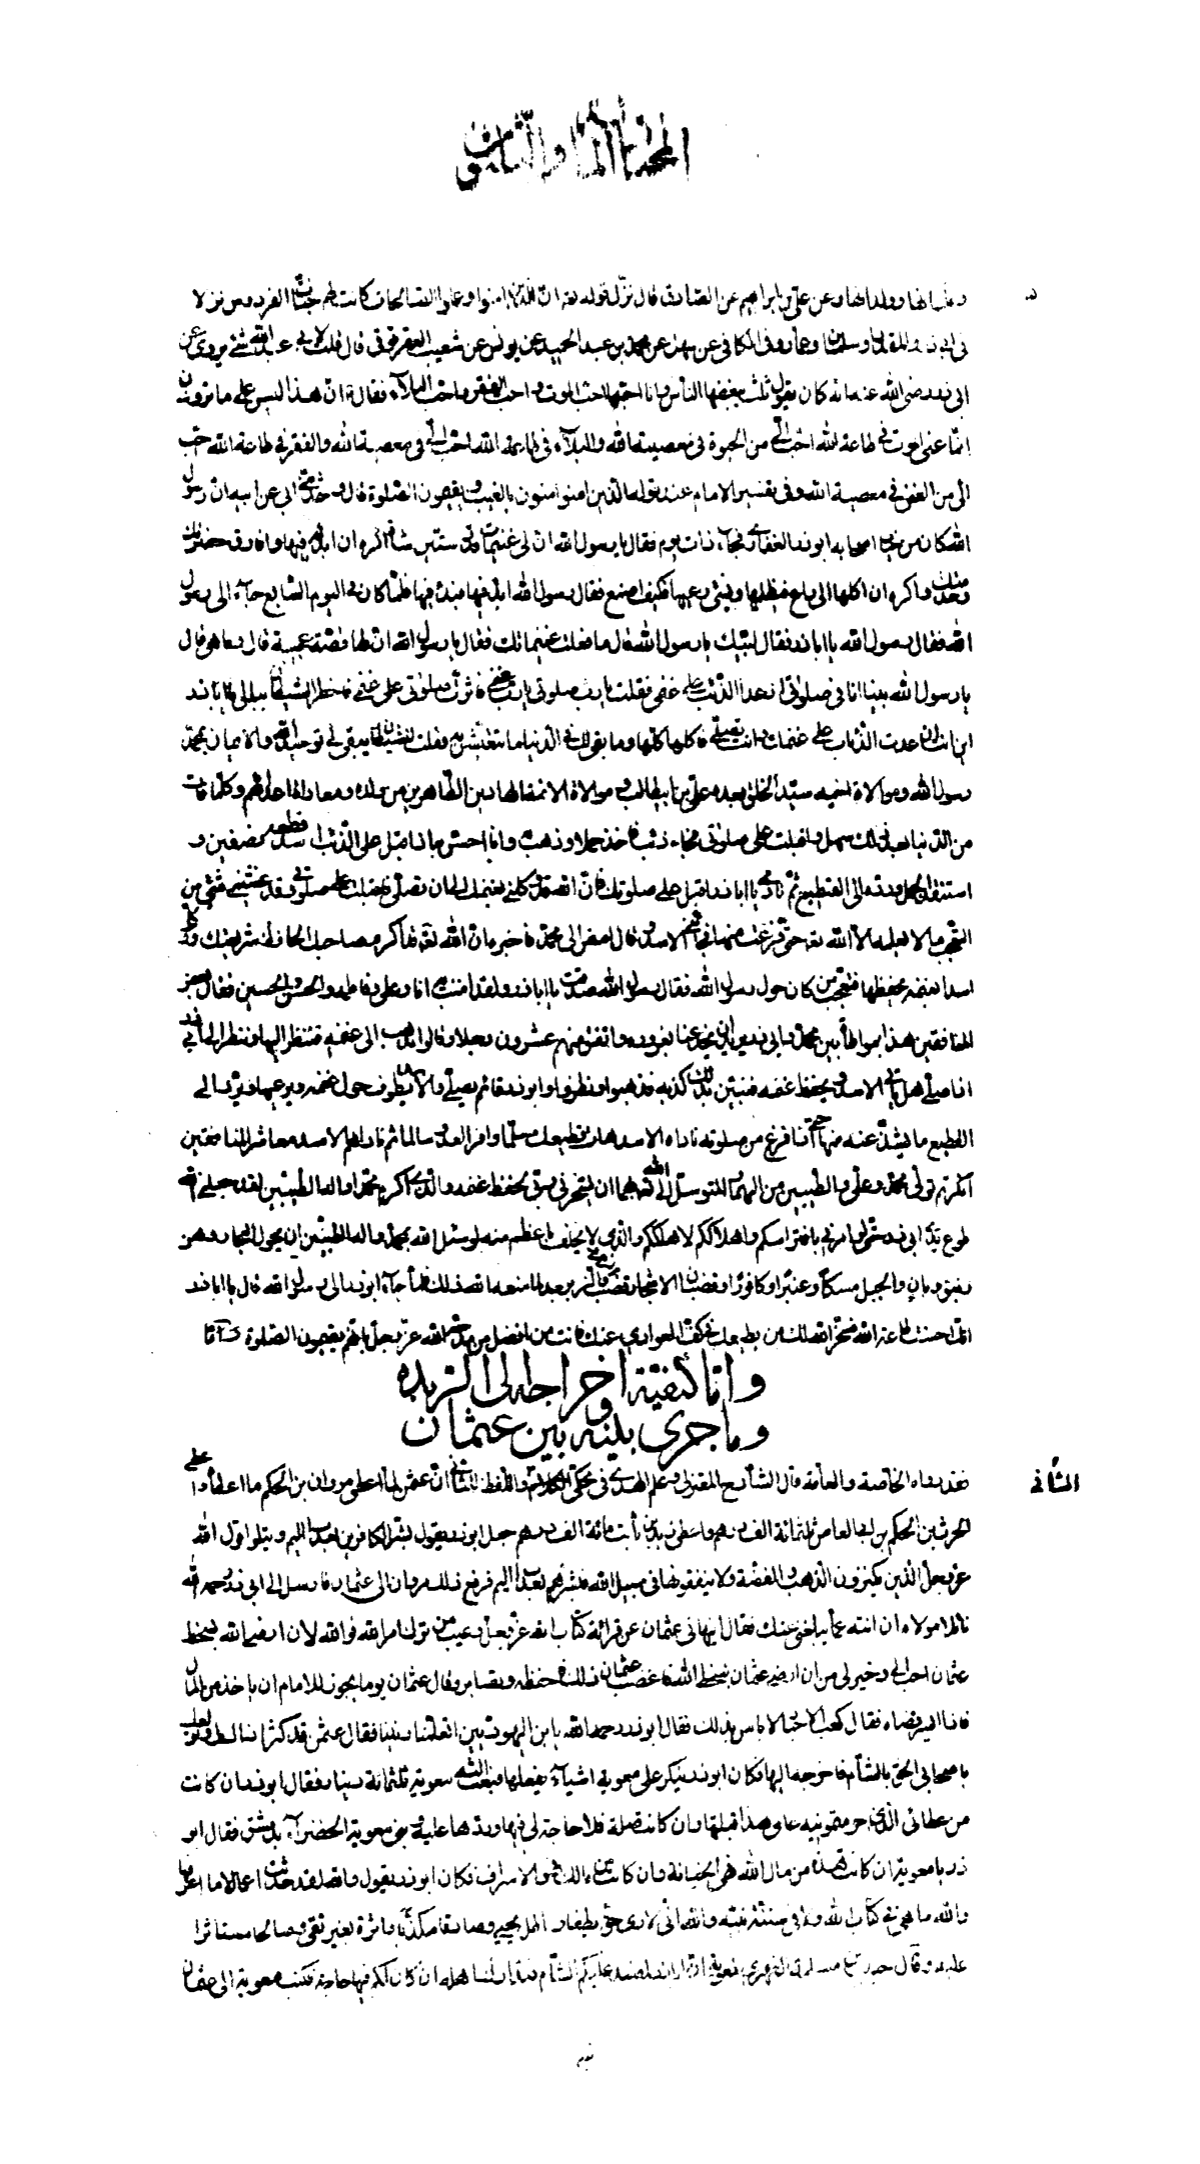 المجلد الثالث
وعن علي بن ابراهيم عن الصادق قال نزل قوله تعه ان الذين امنوا وعملوا الصالحات كانت لهم جنات الفردوس نزلا
في ابي ذر والمقداد وسلمان وعمار وفي الكافي عن سهل عن محمد بن عبد الحميد عن يونس عن شعيب العقرقوفي قال قلت لابي عبد الله شئ يروى عن
ابي ذر رضي الله عنه انه كان يقول ثلث يبغضها الناس وانا احبها احب الموت واحب الفقر واحب البلآء فقال ان هذا ليس على ما ترون
انما عنى الموت في طاعة الله احب الي من الحيوة في معصية الله والبلآء في طاعة الله احب الي في معصية الله والفقر في طاعة الله احب
الي من الغنى في معصية الله وفي تفسير الامام عند قوله الذين يؤمنون بالغيب ويقيمون الصلوة قال وحدثني ابي عن ابيه ان رسول
الله كان من اصحابه ابو ذر الغفاري فجآء ذات يوم فقال يا رسول الله ان لي غنيمات قدر ستين شاة اكره ان ابدو فيها وافارق حضرتك
وخدمتك واكره ان اكلها الى راع فيظلمها ويسئ رعيها فكيف اصنع فقال رسول الله ابد فيها فبدا فيها فلما كان في اليوم السابع جآء الى رسول
الله فقال رسول الله يا ابا ذر فقال لبيك يا رسول الله قال ما فعلت غنيماتك فقال يا رسول الله ان لها قصة عجيبة قال وما هي قال
يا رسول الله بينا انا في صلوتي اذ عدا الذئب على غنمي فقلت يا رب صلوتي يا رب غنمي فاثرت صلوتي على غنمي فاخطر الشيطان ببالي يا ابا ذر
اين انت ان عدت الذئاب على غنمك وانت تصلي فاكلها كلها وما يبقى لك في الدنيا ما تتعيش به فقلت للشيطان يبقى لي توحيد الله والايمان بمحمد
رسول الله وموالاة اخيه سيد الخلق بعده علي بن ابيطالب وموالاة الائمة الطاهرين من ولده ومعاداة اعدائهم وكلما فات
من الدنيا بعد ذلك سهل واقبلت على صلوتي فجاء ذئب فاخذ حملا وذهب وانا احس به اذ اقبل على الذئب اسد فقطعه نصفين و
استنقذ الحمل ورده الى القطيع ثم نادى يا ابا ذر اقبل على صلوتك فان الله قد وكلني بغنمك الى ان تصلي فاقبلت على صلوتي وقد غشيني من
التعجب ما لا يعلمه الا الله تعه حتى فرغت منها فجاءني الاسد وقال امض الى محمد فاخبره ان الله تعه قد اكرم صاحبك الحافظ لشريعتك ووكل
اسدا بغنمه يحفظها فتعجب من كان حول رسول الله فقال رسول الله صدقت يا ابا ذر ولقد امنت به انا وعلي وفاطمه والحسن والحسين فقال بعض
المنافقين هذا بمواطأة بين محمد وابي ذر يريد ان يخدعنا بغروره واتفق منهم عشرون رجلا وقالوا نذهب الى غنمه فننظر اليها وننظر اليه
اذا صلى هل ياتي الاسد ويحفظ غنمه فيتبين بذلك كذبه فذهبوا ونظروا وابو ذر قائم يصلي والاسد يطوف حول غنمه ويرعيها ويرد الى
القطيع ما يشذ عنه منها حتى اذا فرغ من صلوته ناداه الاسد هاك قطيعك مسلما وافر العدد سالما ثم ناداهم الاسد معاشر المنافقين
انكرتم لولي محمد وعلي والطيبين من الهما والمتوسل الى الله بهما ان يسخرني ربي لحفظ غنمه والذي اكرم محمدا واله الطيبين لقد جعلني الله
طوع يد ابي ذر حتى لو امرني بافتراسكم واهلاككم لاهلكتكم والذي لا يحلف باعظم منه لو سئل الله بمحمد واله الطيبين ان يحول البحار دهن
زنبق وبان والجبال مسكا وعنبرا وكافورا وقضبان الاشجار قضب الزمرد والزبرجد لما منعه الله ذلك فلما جآء ابو ذر الى رسول الله قال يا ابا ذر
انك احسنت طاعة الله فسخر الله لك من يطيعك في كف العوادي عنك فانت من افضل من مدحه الله عز وجل بانهم يقيمون الصلوة
واما كيفية اخراجه الى الربذه
وما جرى بينه وبين عثمان
الثاني
فقد رواه الخاصة والعامة قال الشارح المعتزلي وعلم الهدى واللفظ للثاني ان عثمن لما اعطى مروان بن الحكم ما اعطاه واعطى
الحرث بن الحكم بن ابي العاص ثلثمائة الف درهم واعطى زيد بن ثابت مائة الف درهم جعل ابو ذر يقول بشر الكافرين بعذاب اليم ويتلو قول الله
عز وجل الذين يكنزون الذهب والفضة ولا ينفقونها في سبيل الله فبشرهم بعذاب اليم فرفع ذلك مروان الى عثمان فارسل الى ابي ذر رحمه الله
ناتلا مولاه ان انته عما يبلغني عنك فقال اينهاني عثمان عن قرائة كتاب الله عز وجل وعيب من ترك امر الله فوالله لان ارضي الله بسخط
عثمان احب الي وخير لي من ان ارضي عثمان بسخط الله فاغضب عثمان ذلك فاحفظه وتصابر وقال عثمان يوما ايجوز للامام ان ياخذ من المال
فاذا ايسر قضاه فقال كعب الاحبار لا باس بذلك فقال ابو ذر رحمه الله يا بن اليهوديين اتعلمنا ديننا فقال عثمن قد كثر اذاك لي وتولعك
باصحابي الحق بالشام فاخرجه اليها فكان ابو ذر ينكر على معوية اشيآء يفعلها فبعث اليه معوية ثلثمائة دينار فقال ابو ذر ان كانت
من عطائي الذي حرمتمونيه عامي هذا قبلتها وان كانت صلة فلا حاجة لي فيها وردها عليه وبنى معوية الخضرآء بدمشق فقال ابو
ذر يا معوية ان كانت هذه من مال الله فهي الخيانة وان كانت من مالك فهو الاسراف فكان ابو ذر يقول والله لقد حدثت اعمال ما اعرفها
والله ما هي في كتاب الله ولا في سنة نبيه والله اني لارى حقا يطفأ وباطلا يحيى وصادقا مكذبا واثرة بغير تقى وصالحا مستاثرا
عليه وقال حبيب بن مسلمة الفهري لمعوية ان ابا ذر لمفسد عليكم الشام فتدارك اهله ان كان لكم فيها حاجة فكتب معوية الى عثمان